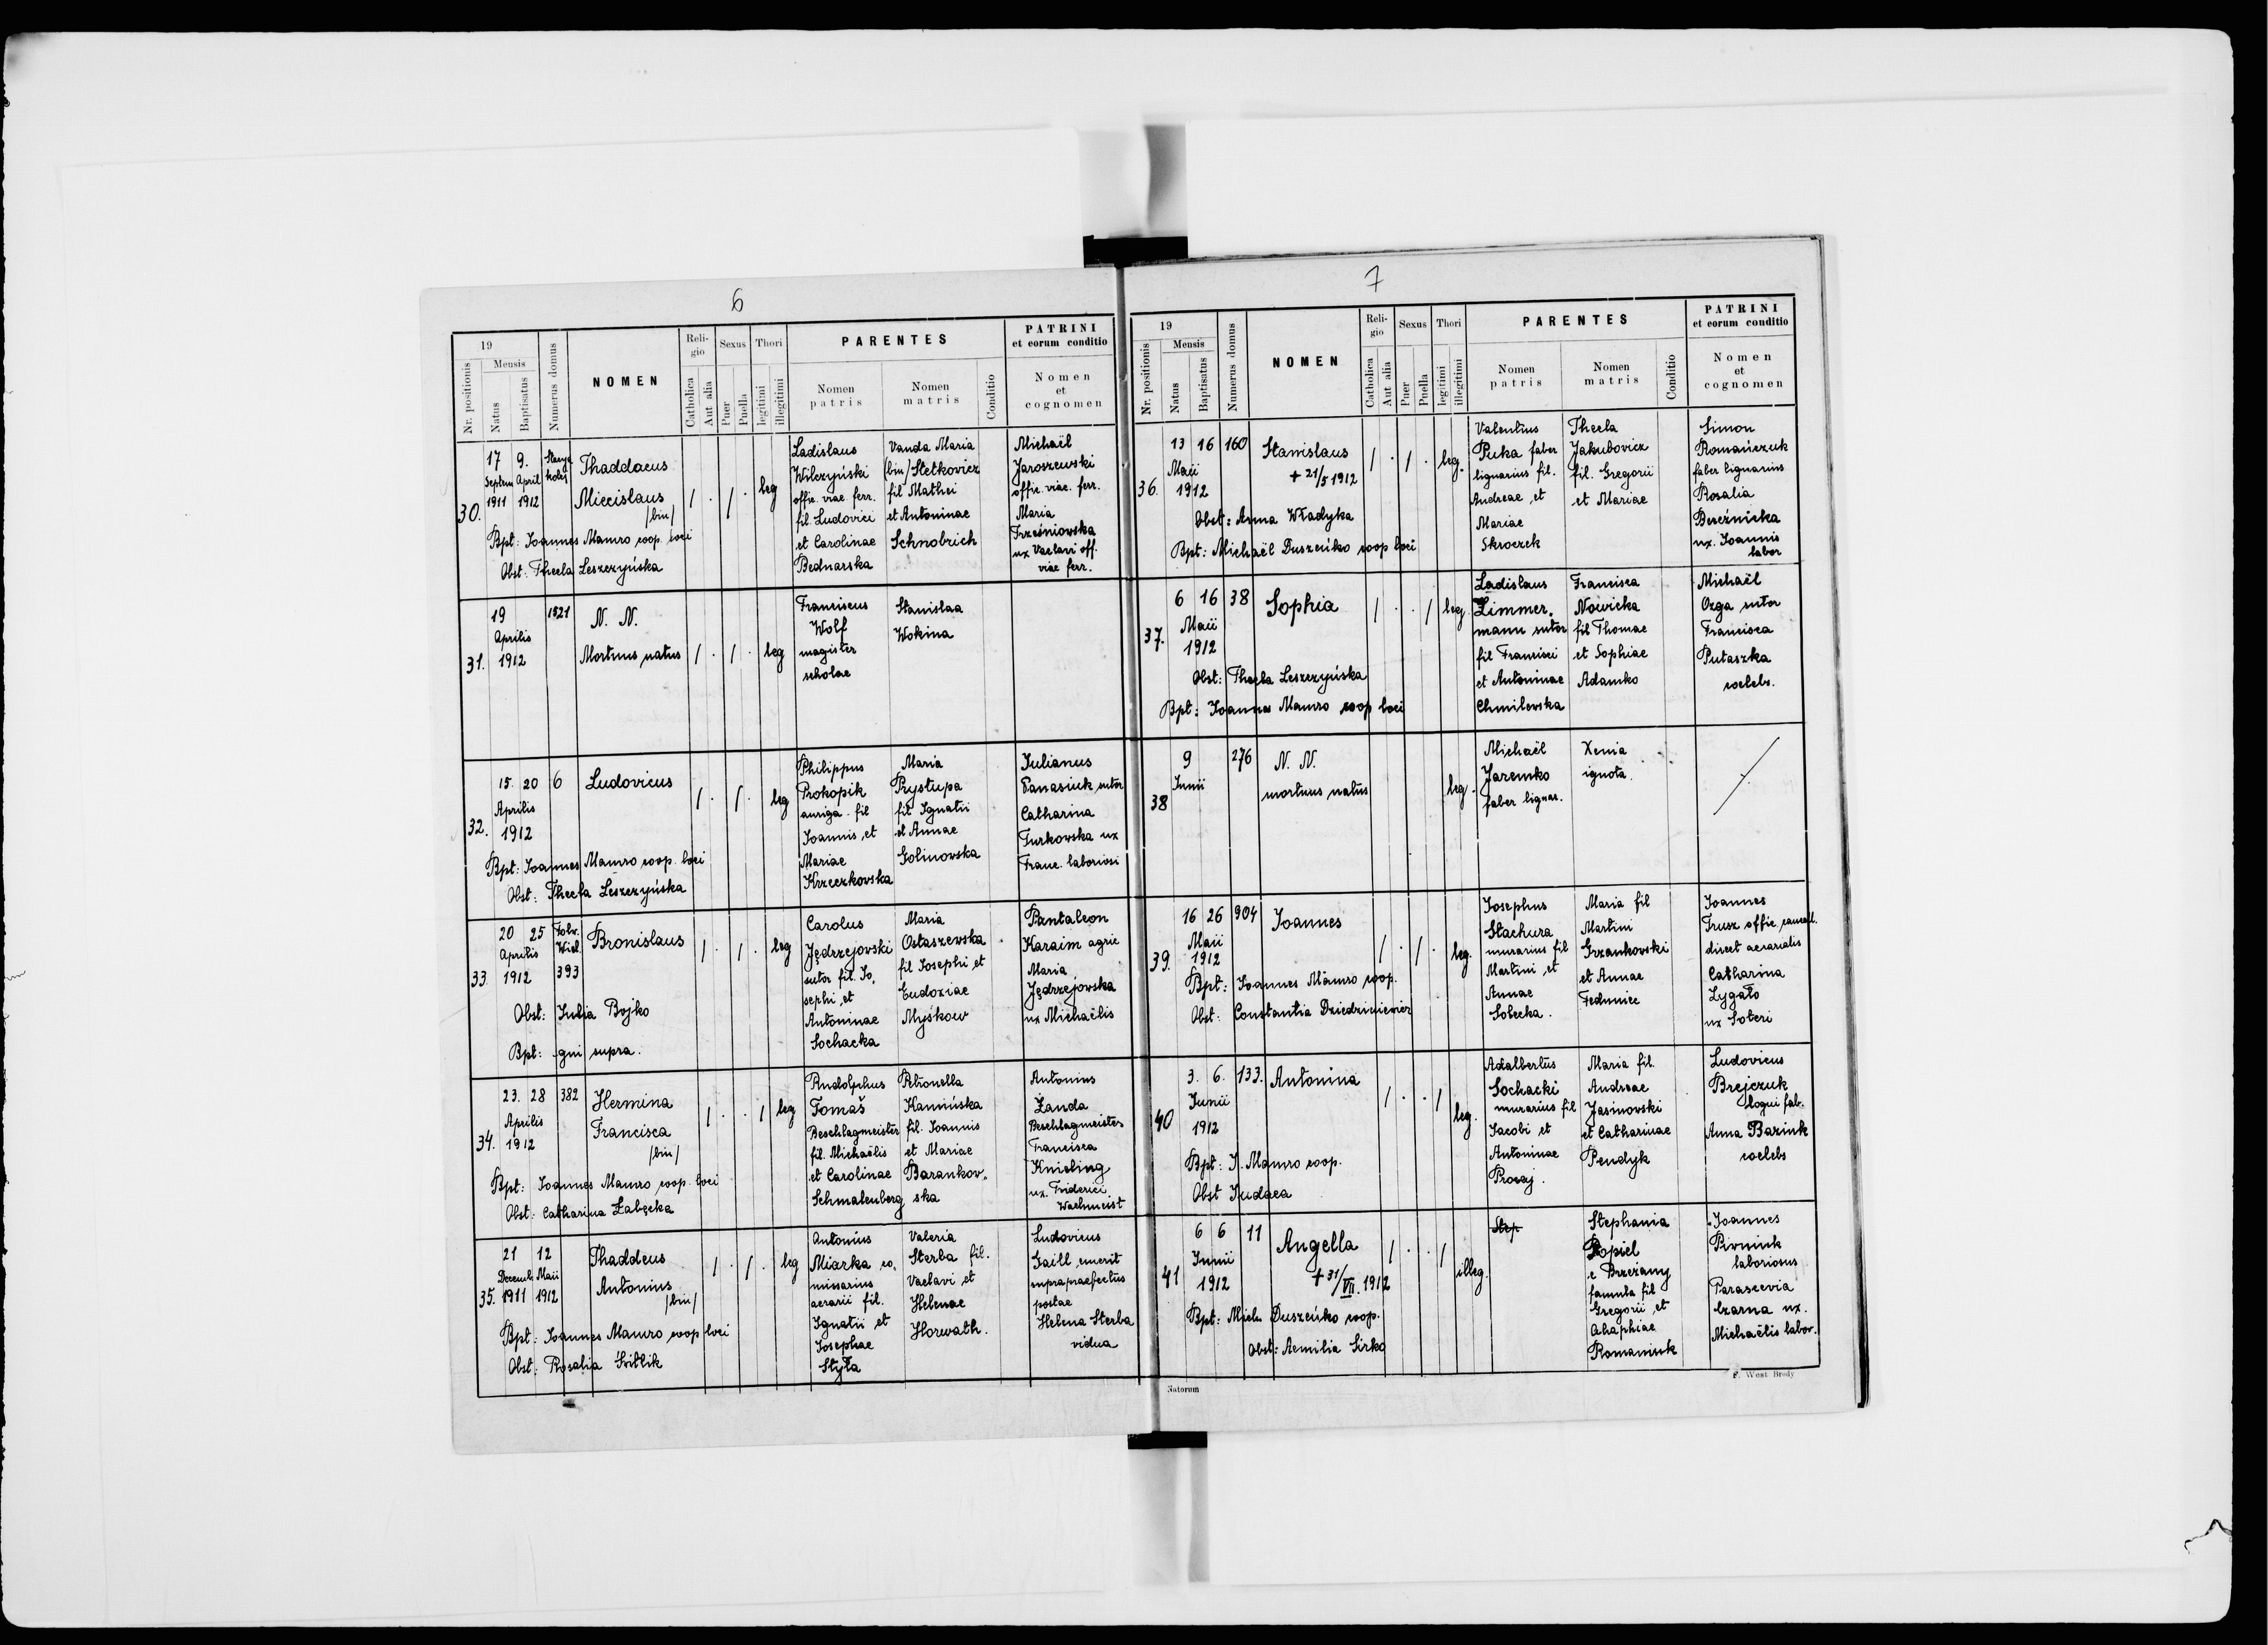 6
19
Nr. positionis
Mensis
Natus
Baptisatus
Numerus domus
NOMEN
Religio
Catholica
Aut alia
Sexus
Puer
Puella
Thori
legitimi
illegitimi
PARENTES
Nomen patris
Nomen matris
Conditio
PATRINI
et eorum conditio
Nomen
et
cognomen
30.
17 9.
Septem April
1911 1912
Thaddaeus
Miecislaus
/bin/
leg
Ladislaus
Wilczyński
offic. viae ferr.
fil. Ludovici
et Carolinae
Bednarska
Vanda Maria
(bin) Stetkovicz
fil Mathei
et Antoninae
Schnobrich
Michaël
Jaroszewski
offic. viae. ferr.
Maria
Trześniowska
ux Vaclavi off.
viae ferr.
Bpt: Joannes Mauro coop. loci
Obst: Thecla Leszczyńska
31.
19
Aprilis
1912
1321
N. N.
Mortuus natus
leg
Franciscus
Wolf
magister
scholae
Stanislaa
Wokina
32.
15. 20
Aprilis
1912
6
Ludovicus
leg
Philippus
Prokopik
auriga. fil
Joannis, et
Mariae
Krzeczkovska
Maria
Prystupa
fil Ignatii
et Annae
Golinowska
Julianus
Panasiuk sutor
Catharina
Turkowska ux
Franc. laboriosi
Bpt: Joannes Mauro coop. loci
Obst: Thecla Leszczyńska
33.
20 25
Aprilis
1912
Folw.
Wiel.
393
Bronislaus
leg
Carolus
Jędrzejovski
sutor fil. Jo,
sephi, et
Antoninae
Sochacka
Maria
Ostaszewska
fil Josephi, et
Eudoxiae
Myśkow
Pantaleon
Karaim agric
Maria
Jędrzejowska
ux Michaëlis
Obst: Julia Bojko
Bpt: qui supra.
34.
23. 28
Aprilis
1912
382
Hermina
Francisca
/bin/
leg
Rudolphus
Tomaš
Beschlagmeister
fil. Michaëlis
et Carolinae
Schmalenberg
Petronella
Kamińska
fil. Joannis
et Mariae
Barankov,
ska
Antonius
Żanda
Beschlagmeister
Francisca
Knieling
ux. Friderici
Wachmeist
Bpt: Joannes Mauro coop. loci
Obst: Catharina Załęcka
35.
21 12
Decemb Maii
1911 1912
Thaddeus
Antonius
/bin/
leg
Antonius
Miarka co,
missarius
aerarii fil.
Ignatii et
Josephae
Styła
Valeria
Sterba fil.
Vaclavi et
Helenae
Horwath.
Ludovicus
Gaill emerit
suprapraefectus
postae
Helena Sterba
vidua
Bpt: Joannes Mauro coop loci
Obst: Rosalia Świtlik
7
19
Nr. positionis
Mensis
Natus
Baptisatus
Numerus domus
NOMEN
Religio
Catholica
Aut alia
Sexus
Puer
Puella
Thori
legitimi
illegitimi
PARENTES
Nomen patris
Nomen matris
Conditio
PATRINI
et eorum conditio
Nomen
et
cognomen
36.
13 16
Maii
1912
160
Stanislaus
+ 21/5 1912
leg.
Valentius
Puka faber
lignarius fil.
Andreae, et
Mariae
Skroczek
Thecla
Jakubovicz
fil. Gregorii
et Mariae
Simon
Romańczuk
faber lignarius
Rosalia
Bereźnicka
ux. Joannis
labor
Obst: Anna Władyka
Bpt: Michaël Duszeńko coop loci
37.
6 16
Maii
1912
38
Sophia
leg.
Ladislaus
Zimmer,
mann sutor
fil Francisci
et Antoninae
Chmilevska
Francisca
Nowicka
fil Thomae
et Sophiae
Adamko
Michaël
Ozga sutor
Francisca
Putaszka
coelebs.
Obst: Thecla Leszczyńska
Bpt: Joannes Mauro coop loci
38
9
Junii
276
N. N.
mortuus natus
leg.
Michaël
Jaremko
faber lignar.
Xenia
ignota.
39.
16 26
Maii
1912
904
Joannes
leg.
Josephus
Stachura
murarius fil
Martini, et
Annae
Sobecka.
Maria fil
Martini
Grzankovski
et Annae
Feduniec
Joannes
Trusz offic. cancell.
direct aerarialis
Catharina
Lygało
ux Soteri
Bpt: Joannes Mauro coop.
Obst: Constantia Dziedziniewicz
40
3. 6.
Junii
1912
133.
Antonina
leg.
Adalbertus
Sochacki
murarius fil
Jacobi et
Antoninae
Procaj.
Maria fil.
Andreae
Jasinovski
et Catharinae
Pendyk
Ludovicus
Brejczuk
Anna Baziuk
coelebs
Bpt: J. Mauro coop.
Obst Judaea
41
6 6
Junii
1912
11
Angella
+ 31/VII. 1912
illeg.
Step
Stephania
Popiel
e Brzeżany
famula fil
Gregorii, et
Ahaphiae
Romaniuk
Joannes
Pivniuk
laboriosus
Parascevia
Czarna ux.
Michaëlis labor.
Bpt: Mich Duszeńko coop.
Obst: Aemilia Sirko
Natorum
F. West Brody